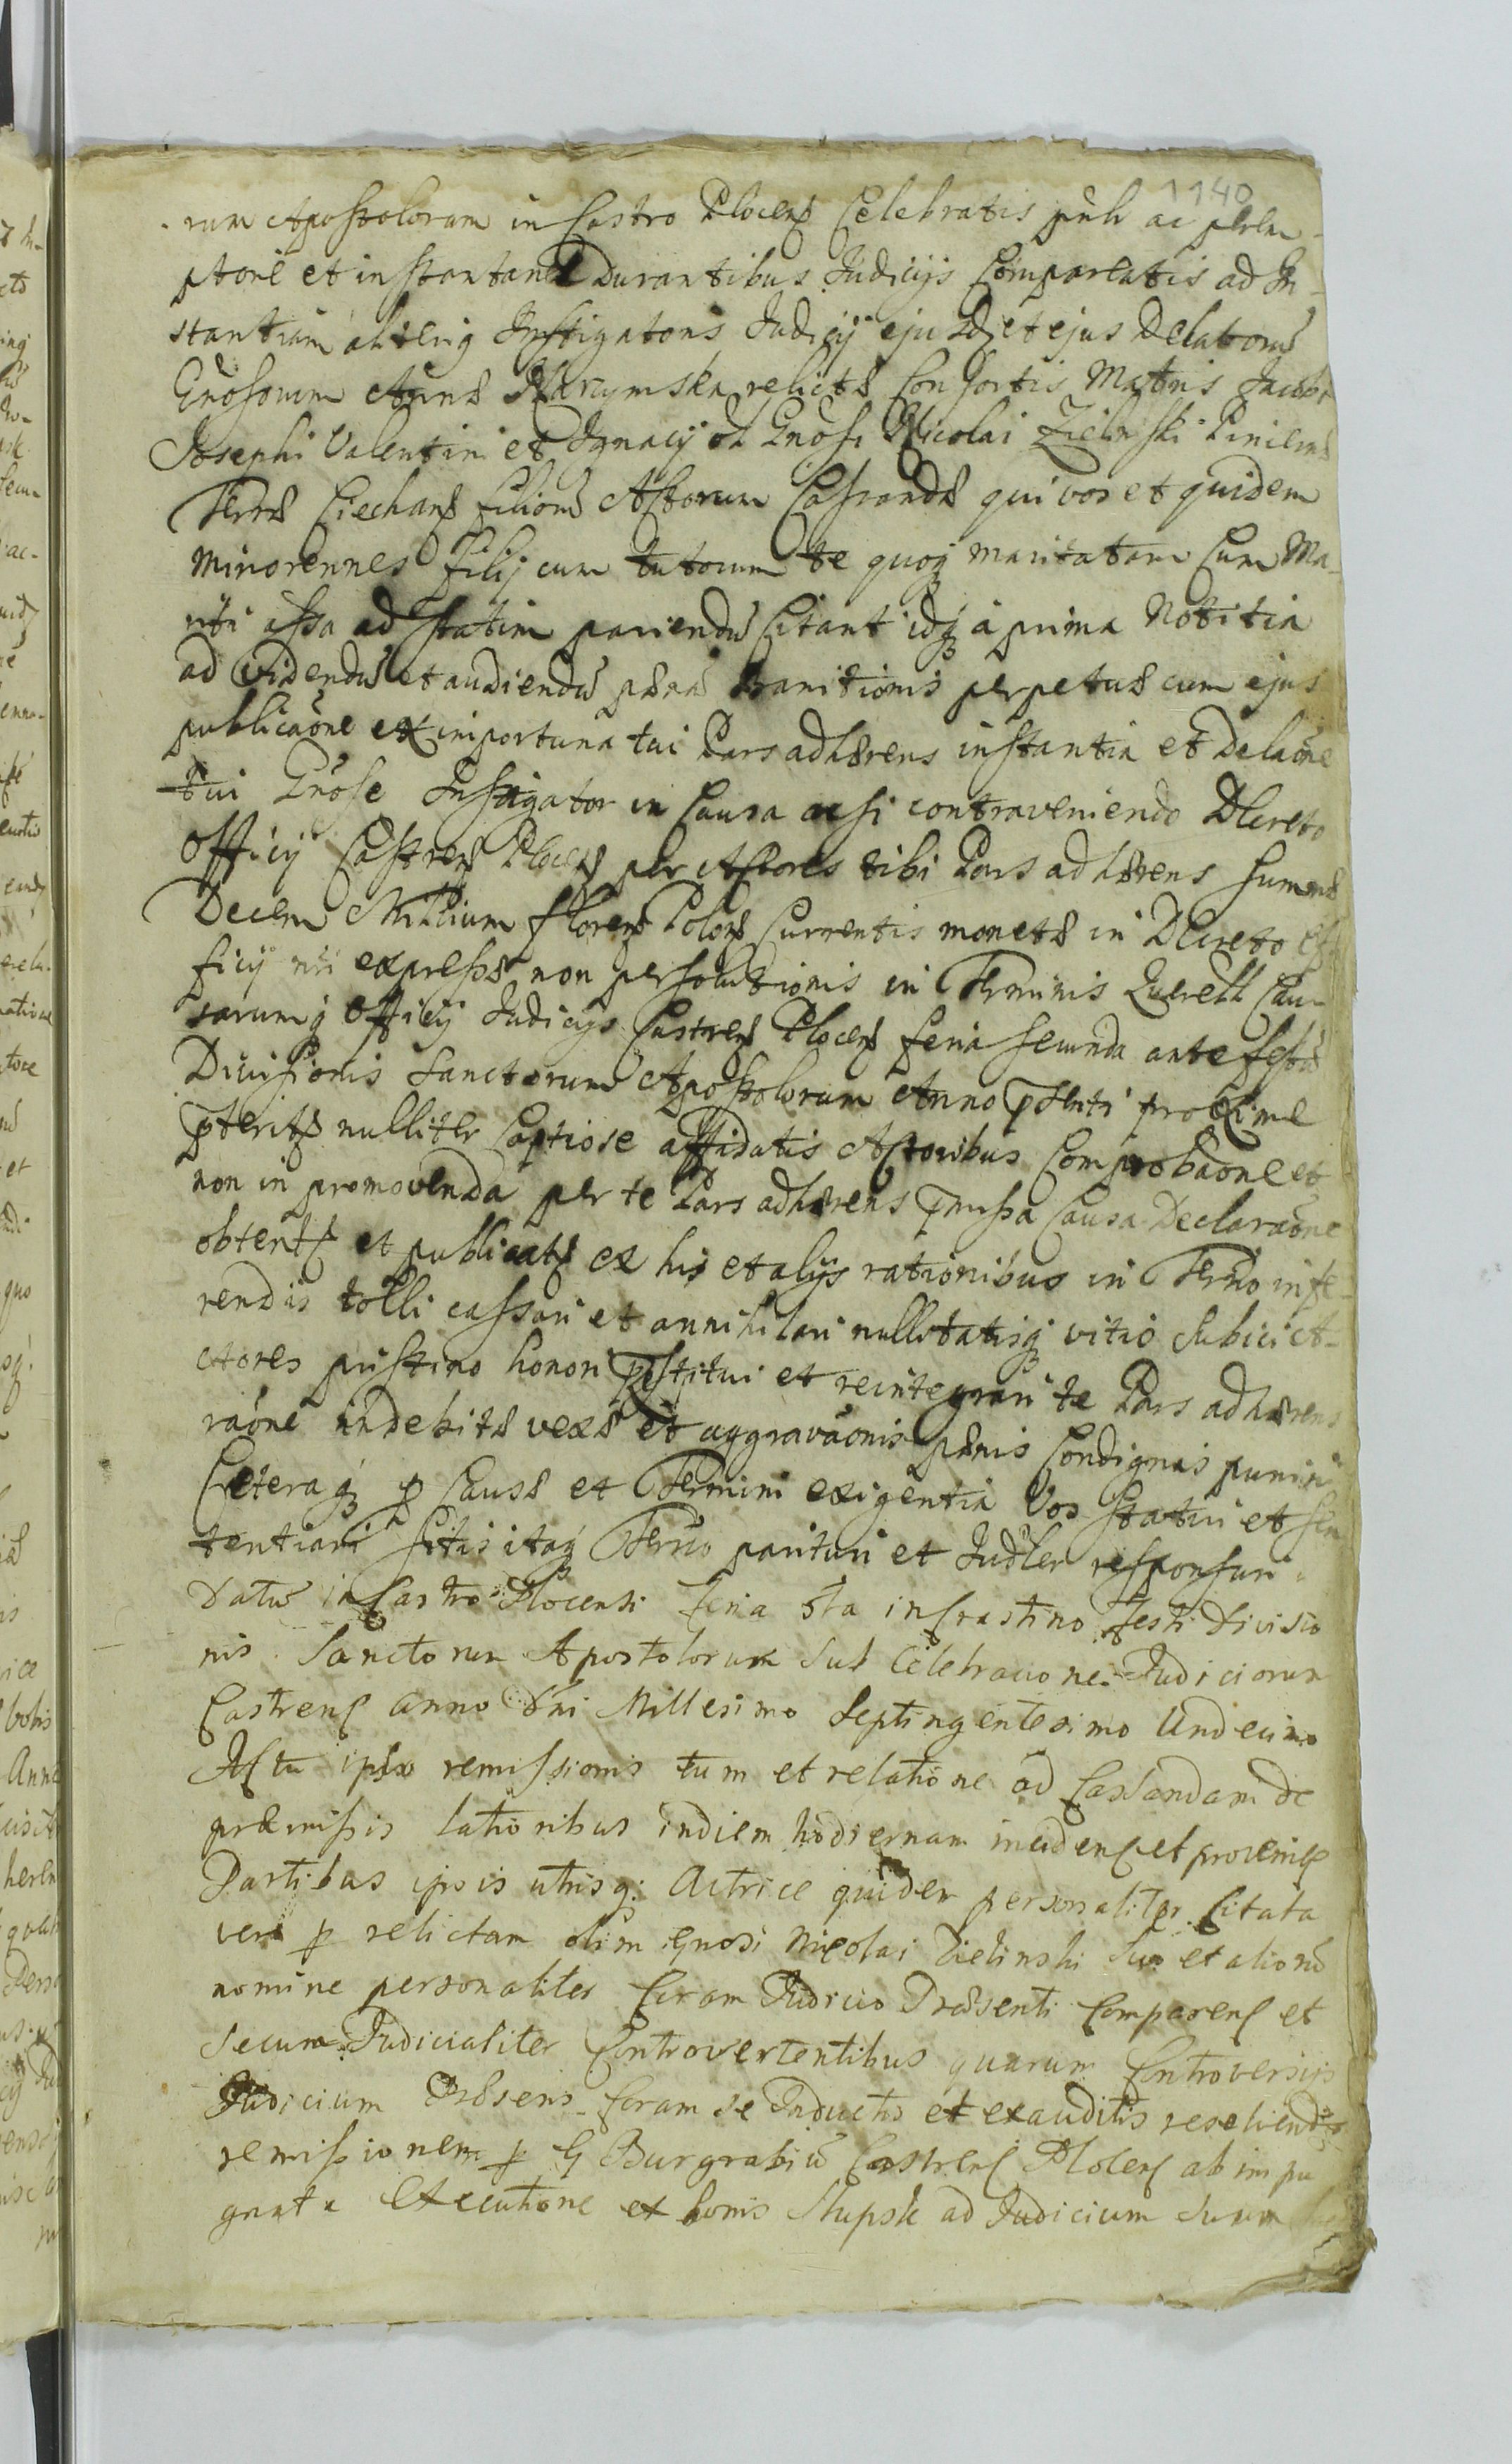 1140
rum Apostolorum in Castro Plocens Celebratis punli ac perem
ptorie et instantanee Durantibus Judicijs Compareatis ad In-
stantiam alterig Instigatoris Judicij ejusdz et ejus Delatorum
Gnosorum Annæ relictæ Consortis Matris Jacobi
Josephi Valentini et Ignacij ol Gnosi Nicolai Zielinski
Terræ Ciechans filiorum Actorum Cassandæ qui vos et quidem
Minorennes filij cum tutorum te quoq maritatam Cum Ma-
riti assa ad statim pariendū Citant idq a prima Notitia
ad videndū et audiendū pænas banitionis perpetuæ cum ejus
publicaōne ex importuna tui Pars adhærens instantia et Delaōne
tui Gnose Instigator in Causa acsi contraveniendo Decreto
Officij Castrens Plocens per Actores tibi Pars adhærens summæ
Decem Millium florens Polons Currentis monetæ in Decreto Of
ficij nri expressæ non persolutionis in Terminis Querell Cau-
sarumq Officij Judicijs Castrens Plocens feria secunda ante festū
Divisionis Sanctorum Apostolorum Anno pnti proxime
pteritz nulliter Captiose affidatis Actoribus Comprobaōne et
non in promovenda per te Pars adhærens pmissa Causa Declaraōne
obtentz et publicatz ex his et alijs rationibus in Terno infe-
rendis tolli cassari et annihilari nullitatisq vitio Subici A-
ctores pristino honori restitui et reintegrari te Pars adhærens
raōne indebitæ vexæ et aggravaōnis pænis Condignis puniri
Ceteraq p Causæ et Termini exigentia Vos statui et sen
tentiari sitis itaq Terno parituri et Judler responsuri
Datū in Castro Plocensi feria 5ta in Crastino festi Divisio
nis Sanctorum Apostolorum sub Celebracione Judiciorum
Castrens anno Dni Millesimo Septingentesimo Undecimo
Actu ipso remissionis tum et relatione ad Cassandam de
præmissis lationibus in diem hodiernam incidens et proveniens
Partibus ipsis utrisq: Actrice quidem personaliter Citata
vero p relictam olim Gnosi Nicolai Zielinski suo et aliorū
nomine personaliter Coram Judicio Præsenti Comparens et
secum Judicialiter Controvertentibus quarum Controversijs
Judicium Præsens Coram se Inductis et exauditis reseliendo
remissionem p G Burgrabiū Castrens Plocens ab impu
gnata Executione et bonis Slupsk ad Judicium suum